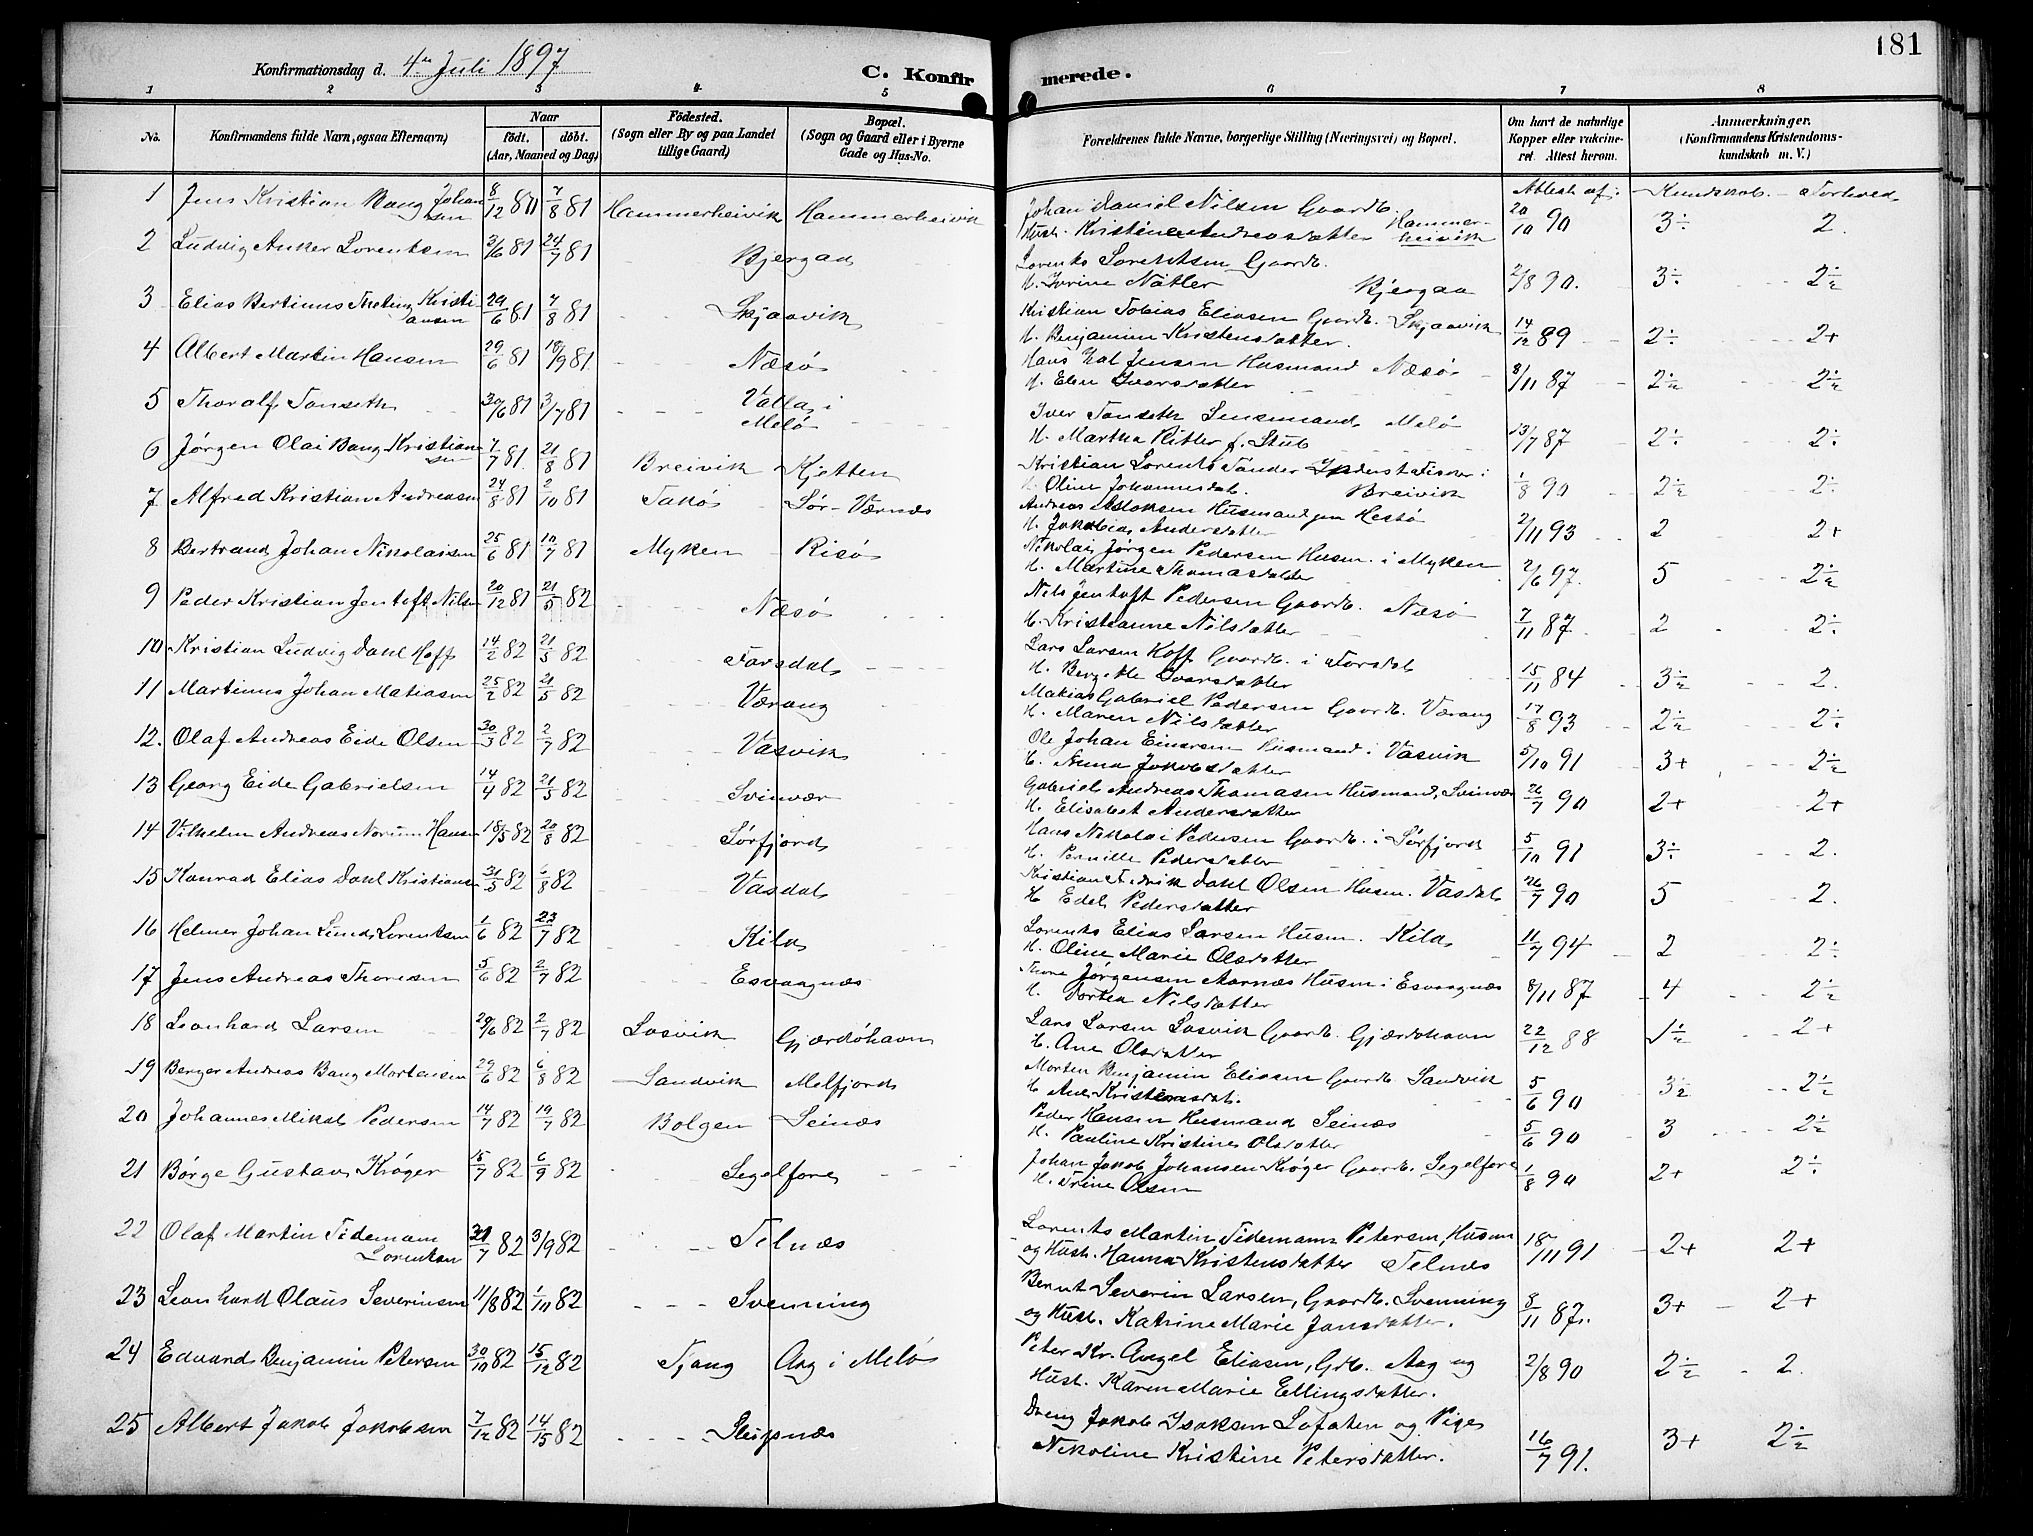 181
Konfirmationsdag d. 4de Juli 1897
C. Konfirmerede.
1 2 3 4 5 6 7 8
No.
Konfirmandens fulde Navn, ogsaa Efternavn)
Naar
født. døbt.
(Aar, Maaned og Dag)
Fødested.
(Sogn eller By og paa Landet
tillige Gaard)
Bopæl.
(Sogn og Gaard eller i Byerne
Gade og Hus-No.
Forældrenes fulde Navne, borgerlige Stilling (Næringsvei) og Bopæl.
Om havt de naturlige
Kopper eller vakcine-
ret. Attest herom.
Anmærkninger.
(Konfirmandens Kristendoms-
kundskab m. V.)
Attest af: Kundskab - Forhold
1 Jens Kristian Bang Johansen 8/12 80 7/8 81 Hammerheivik Hammerheivik
Johan Daniel Nilsen Gaardb.
Hust. Kristine Andreasdatter Hammerheivik 20/10 90 3÷ 2.
2 Ludvig Anker Lorentsen 3/6 81 24/7 81 Bjergaa
Lorents Lorentsen Gaardb.
H. Bjergaa 2/8 90. 3÷ 2½
3 Elias Bertinus Kristiansen 29/6 81 7/8 81 Skjaavik
Kristian Tobias Eliasen Gaardb. Skjaavik
H. Benjamine Kristensdatter. 14/12 89 2÷ 2+
4 Albert Martin Hansen 29/6 81 18/9 81 Næsø
Hans Jensen Husmand Næsø
H. Elen Ivarsdatter 8/11 87 2½ 2½
5 Thoralf Tonseth 30/6 81 3/7 81 Valla i Melø
Iver Tonseth Lensmand Melø
H. Martha f. Stub 13/7 87 2÷ 2÷
6 Jørgen Olai Bang Kristiansen 7/7 81. 21/8 81 Breivik Kjetten
Kristian Lorents Tønder Inderstfisker i
H. Oline Johannesdat. Breivik 1/8 90 2½ 2÷
7 Alfred Kristian Andreasen 24/8 81 2/10 81 Taskø Sør-Værnes
Andreas Husmand paa Hestø
H. Jakobia Andersdatter 2/11 93 2 2+
8 Bertrand Johan Nikolaisen 25/6 81 10/7 81 Myken Risø
Nikolai Jørgen Pedersen Husm. i Myken
H. Martine Thomasdatter 2/6 97. 5 2½
9 Peder Kristian Jentoft Nilsen 20/12 81 21/5 82 Næsø
Nils Jentoft Pedersen Gaardb. Næsø
H. Kristianne Nilsdatter 7/11 87 2 2÷
10 Kristian Ludvig Dahl Hoff 14/2 82 21/5 82 Forsdal
Lars Larsen Hoff Gaardb. i Forsdal
H. Bergitte Ivarsdatter 15/11 84 3½ 2.
11 Martinus Johan Matiasen 25/2 82 21/5 82 Værang
Matias Gabriel Pedersen Gaardb. Værang
H. Maren Nilsdatter 17/8 93 2½ 2÷
12. Olaf Andreas Eide Olsen 30/3 82 2/7 82 Vasvik
Ole Johan Einersen Husmand i Vasvik
H. Anna Jakobsdatter 5/10 91 3+ 2½
13 Georg Eide Gabrielsen 14/4 82 21/5 82 Svinvær
Gabriel Andreas Thomasen Husmand, Svinvær
H. Elisabet Andersdatter 26/7 90 2+ 2+
14 Vilhelm Andreas Norum Hansen 18/5 82 20/8 82 Sørfjord
Hans Nikolai Pedersen Gaardb. i Sørfjord
H. Pernille Pedersdatter 5/10 91 3÷ 2.
15 Konrad Elias Dahl Kristiansen 31/5 82 6/8 82 Vasdal
Kristian Fredrik Dahl Olsen Husm. Vasdal
H Edel Pedersdatter 26/7 90 5 2.
16 Helmer Johan Lund Lorentsen 1/6 82 23/7 82 Kila
Lorents Elias Larsen Husm. Kila
H. Oline Marie Olsdatter 11/7 94 2 2÷
17 Jens Andreas Thoresen 5/6 82 2/7 82 Esvaagnæs
Thore Jørgensen Aarnæs Husm i Esvaagnæs
H. Dortea Nilsdatter 8/11 87 4 2½
18 Leonhard Larsen 20/6 82 2/7 82 Losvik Gjærdøhavn
Lars Larsen Losvik Gaardb. Gjærdøhavn
H. Ane Olsdatter 22/12 88 1½ 2+
19 Berger Andreas Bang Mortensen 29/6 82 6/8 82 Sandvik Melfjord
Morten Benjamin Eliasen Gaardb. Sandvik
H Ane Kristensdat. 5/6 90 3½ 2½
20 Johannes Mikal Pedersen 14/7 82 19/7 82 Bolgen Seinæs
Peder Hansen Husmand Seinæs
H. Pauline Kristine Olsdatter 5/6 90 3 2½
21 Børge Gustav Krøger 15/7 82 6/9 82 Segelfore
Johan Jakob Johansen Krøger Gaardb. Segelfore
H. Trine Olsen 1/8 90 2+ 2÷
22 Olaf Martin Tidemann Lorentsen 31/7 82 3/9 82 Telnæs
Lorents Martin Tidemann Petersen, Husm
og Hust. Hanna Kristensdatter Telnæs 18/11 91 2+ 2+
23 Leonhard Olaus Severinsen 11/8 82 1/10 82 Svenning
Bernt Severin Larsen, Gaardb. Svenning
og Hust. Katrine Marie Jansdatter. 8/11 87. 3+ 2+
24 Edvard Benjamin Petersen 30/10 82 15/12 82 Tjong Aag i Melø
Peter Kr. Angel Eliasen, Gdb. Aag og
Hust. Karen Marie Ellingsdatter. 2/8 90 2½ 2.
25 Albert Jakob Jakobsen 7/12 82 14/15 82 Sleipnæs
Dreng Jakob Isaksen Lofoten og Pige
Nikoline Kristine Petersdatter. 16/7 91. 3+ 2½